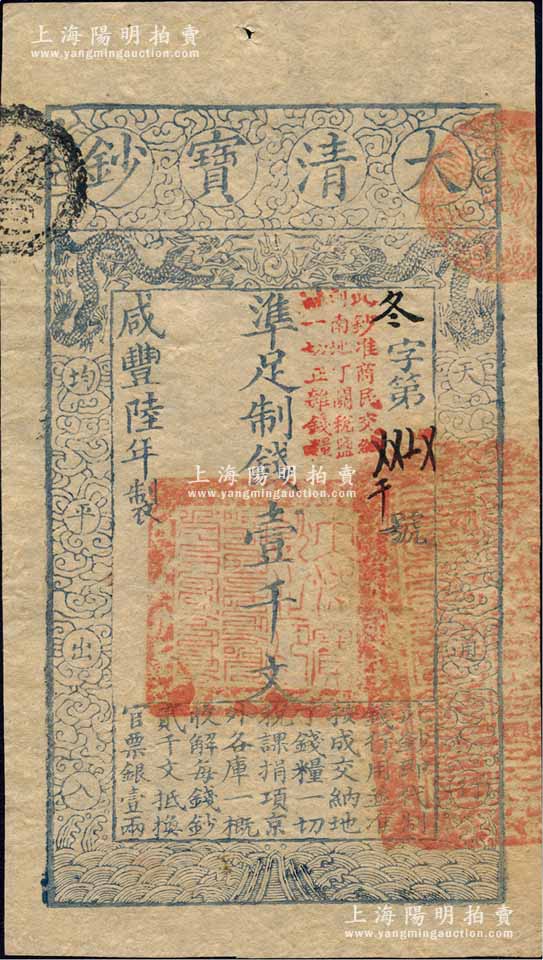 上海陽明拍賣
www.yangmingauction.com
大清寶鈔
天
通
均平出入
冬字第
千
號
此鈔准商民交納
河南地丁關稅鹽
一切正雜錢糧
準足制錢壹千文
咸豐陸年製
此鈔即代制
錢行用並准
按成交納地
丁錢糧一切
稅課捐項京
外各庫一概
收解每錢鈔
貳千文抵換
官票銀壹兩
上海陽明拍賣
www.yangmingauction.com
上海陽明拍賣
www.yangmingauction.com